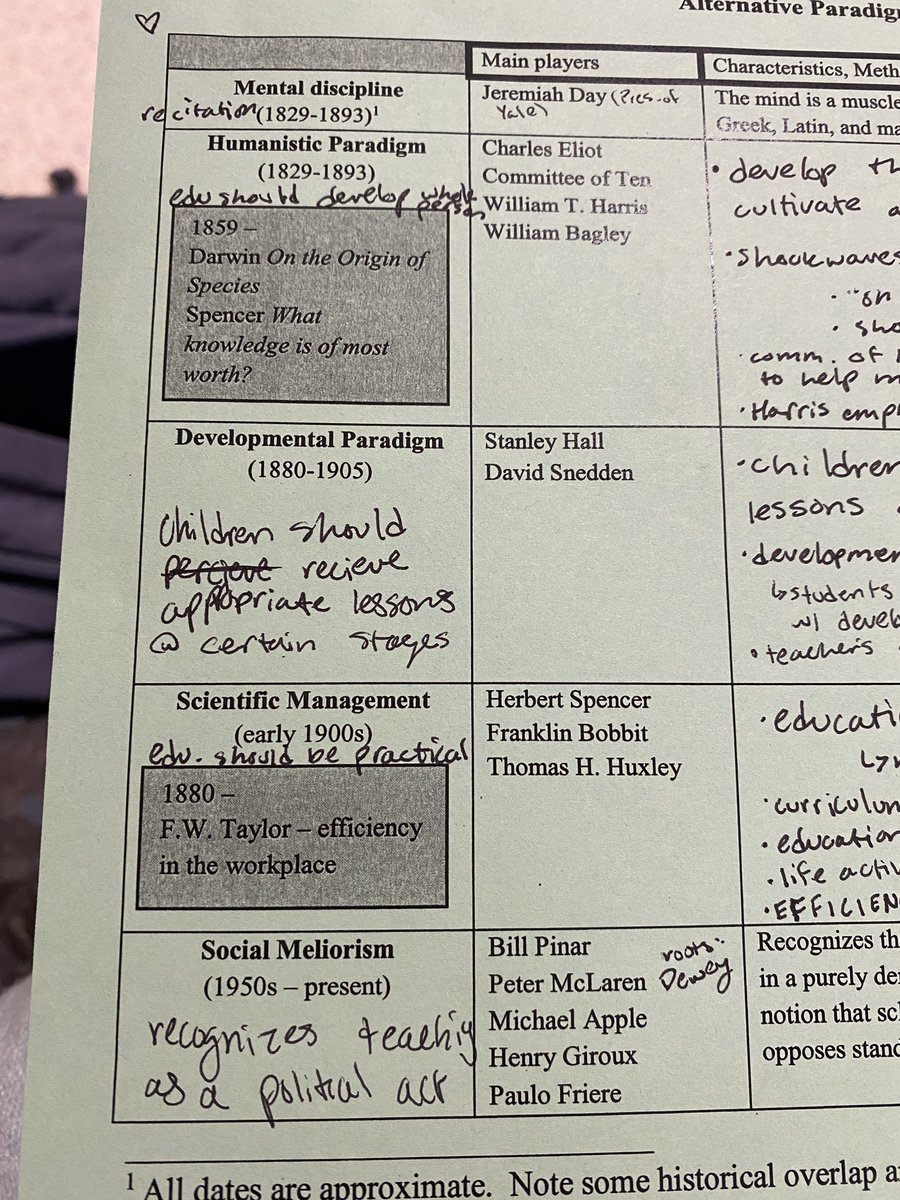 Alternative Paradig
Main players
Characteristics, Meth
Mental discipline
recitation (1829-1893)¹
Jeremiah Day (Pres. of
Yale)
The mind is a muscle
Greek, Latin, and ma
Humanistic Paradigm
(1829-1893)
edu should develop whole
person
1859 –
Darwin On the Origin of
Species
Spencer What
knowledge is of most
worth?
Charles Eliot
Committee of Ten
William T. Harris
William Bagley
• develop th
cultivate a
• shockwaves
• "on
• sho
• comm. of
to help m
• Harris emp
Developmental Paradigm
(1880-1905)
Children should
recieve
appropriate lessons
@ certain stages
Stanley Hall
David Snedden
• children
lessons
• developmen
↳ students
w/ develo
• teachers
Scientific Management
(early 1900s)
edu. should be practical
1880 –
F.W. Taylor – efficiency
in the workplace
Herbert Spencer
Franklin Bobbit
Thomas H. Huxley
• educati
• curriculum
• education
• life activ
• EFFICIEN
Social Meliorism
(1950s – present)
recognizes teaching
as a political act
Bill Pinar
Peter McLaren
Michael Apple
Henry Giroux
Paulo Friere
roots:
Dewey
Recognizes th
in a purely de
notion that sc
opposes stand
¹ All dates are approximate. Note some historical overlap a